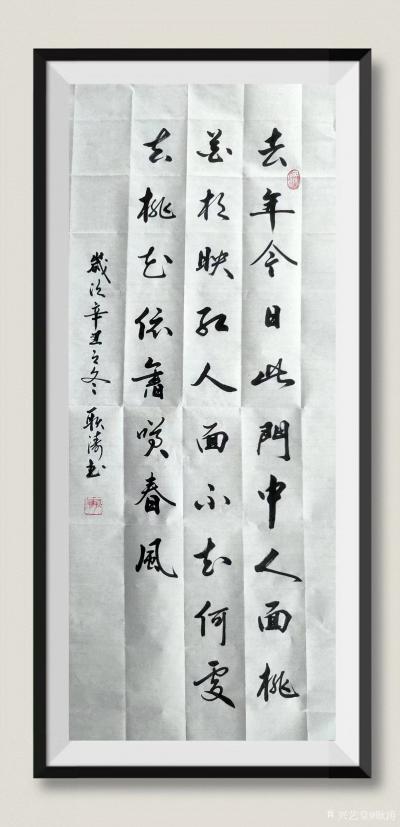 去年今日此門中人面桃
花相映红人面不知何處
去桃花依舊笑春風
歲次辛丑之冬 耿涛书
兴艺堂@耿涛